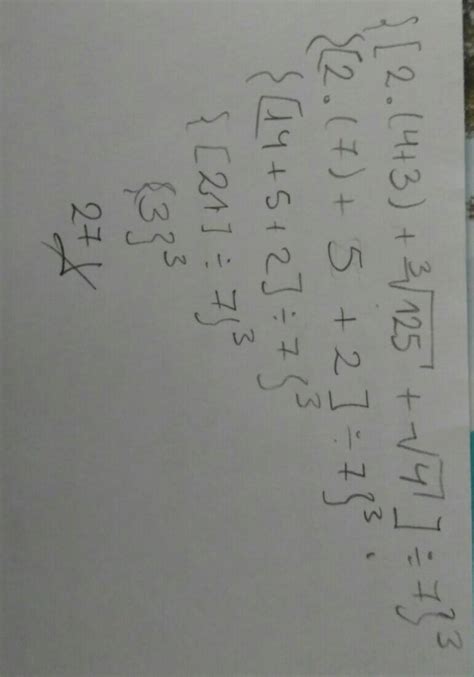 {[2·(4+3)+∛125+√4]÷7}³
{[2·(7)+5+2]÷7}³.
{[14+5+2]÷7}³
{[21]÷7}³
{3}³
27